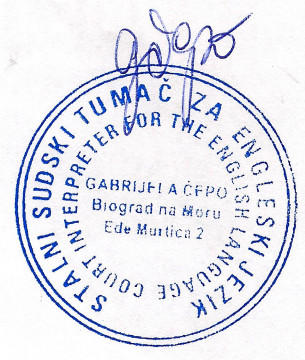 STALNI SUDSKI TUMAČ ZA ENGLESKI JEZIK
COURT INTERPRETER FOR THE ENGLISH LANGUAGE
GABRIJELA ČEPO
Biograd na Moru
Ede Murtića 2